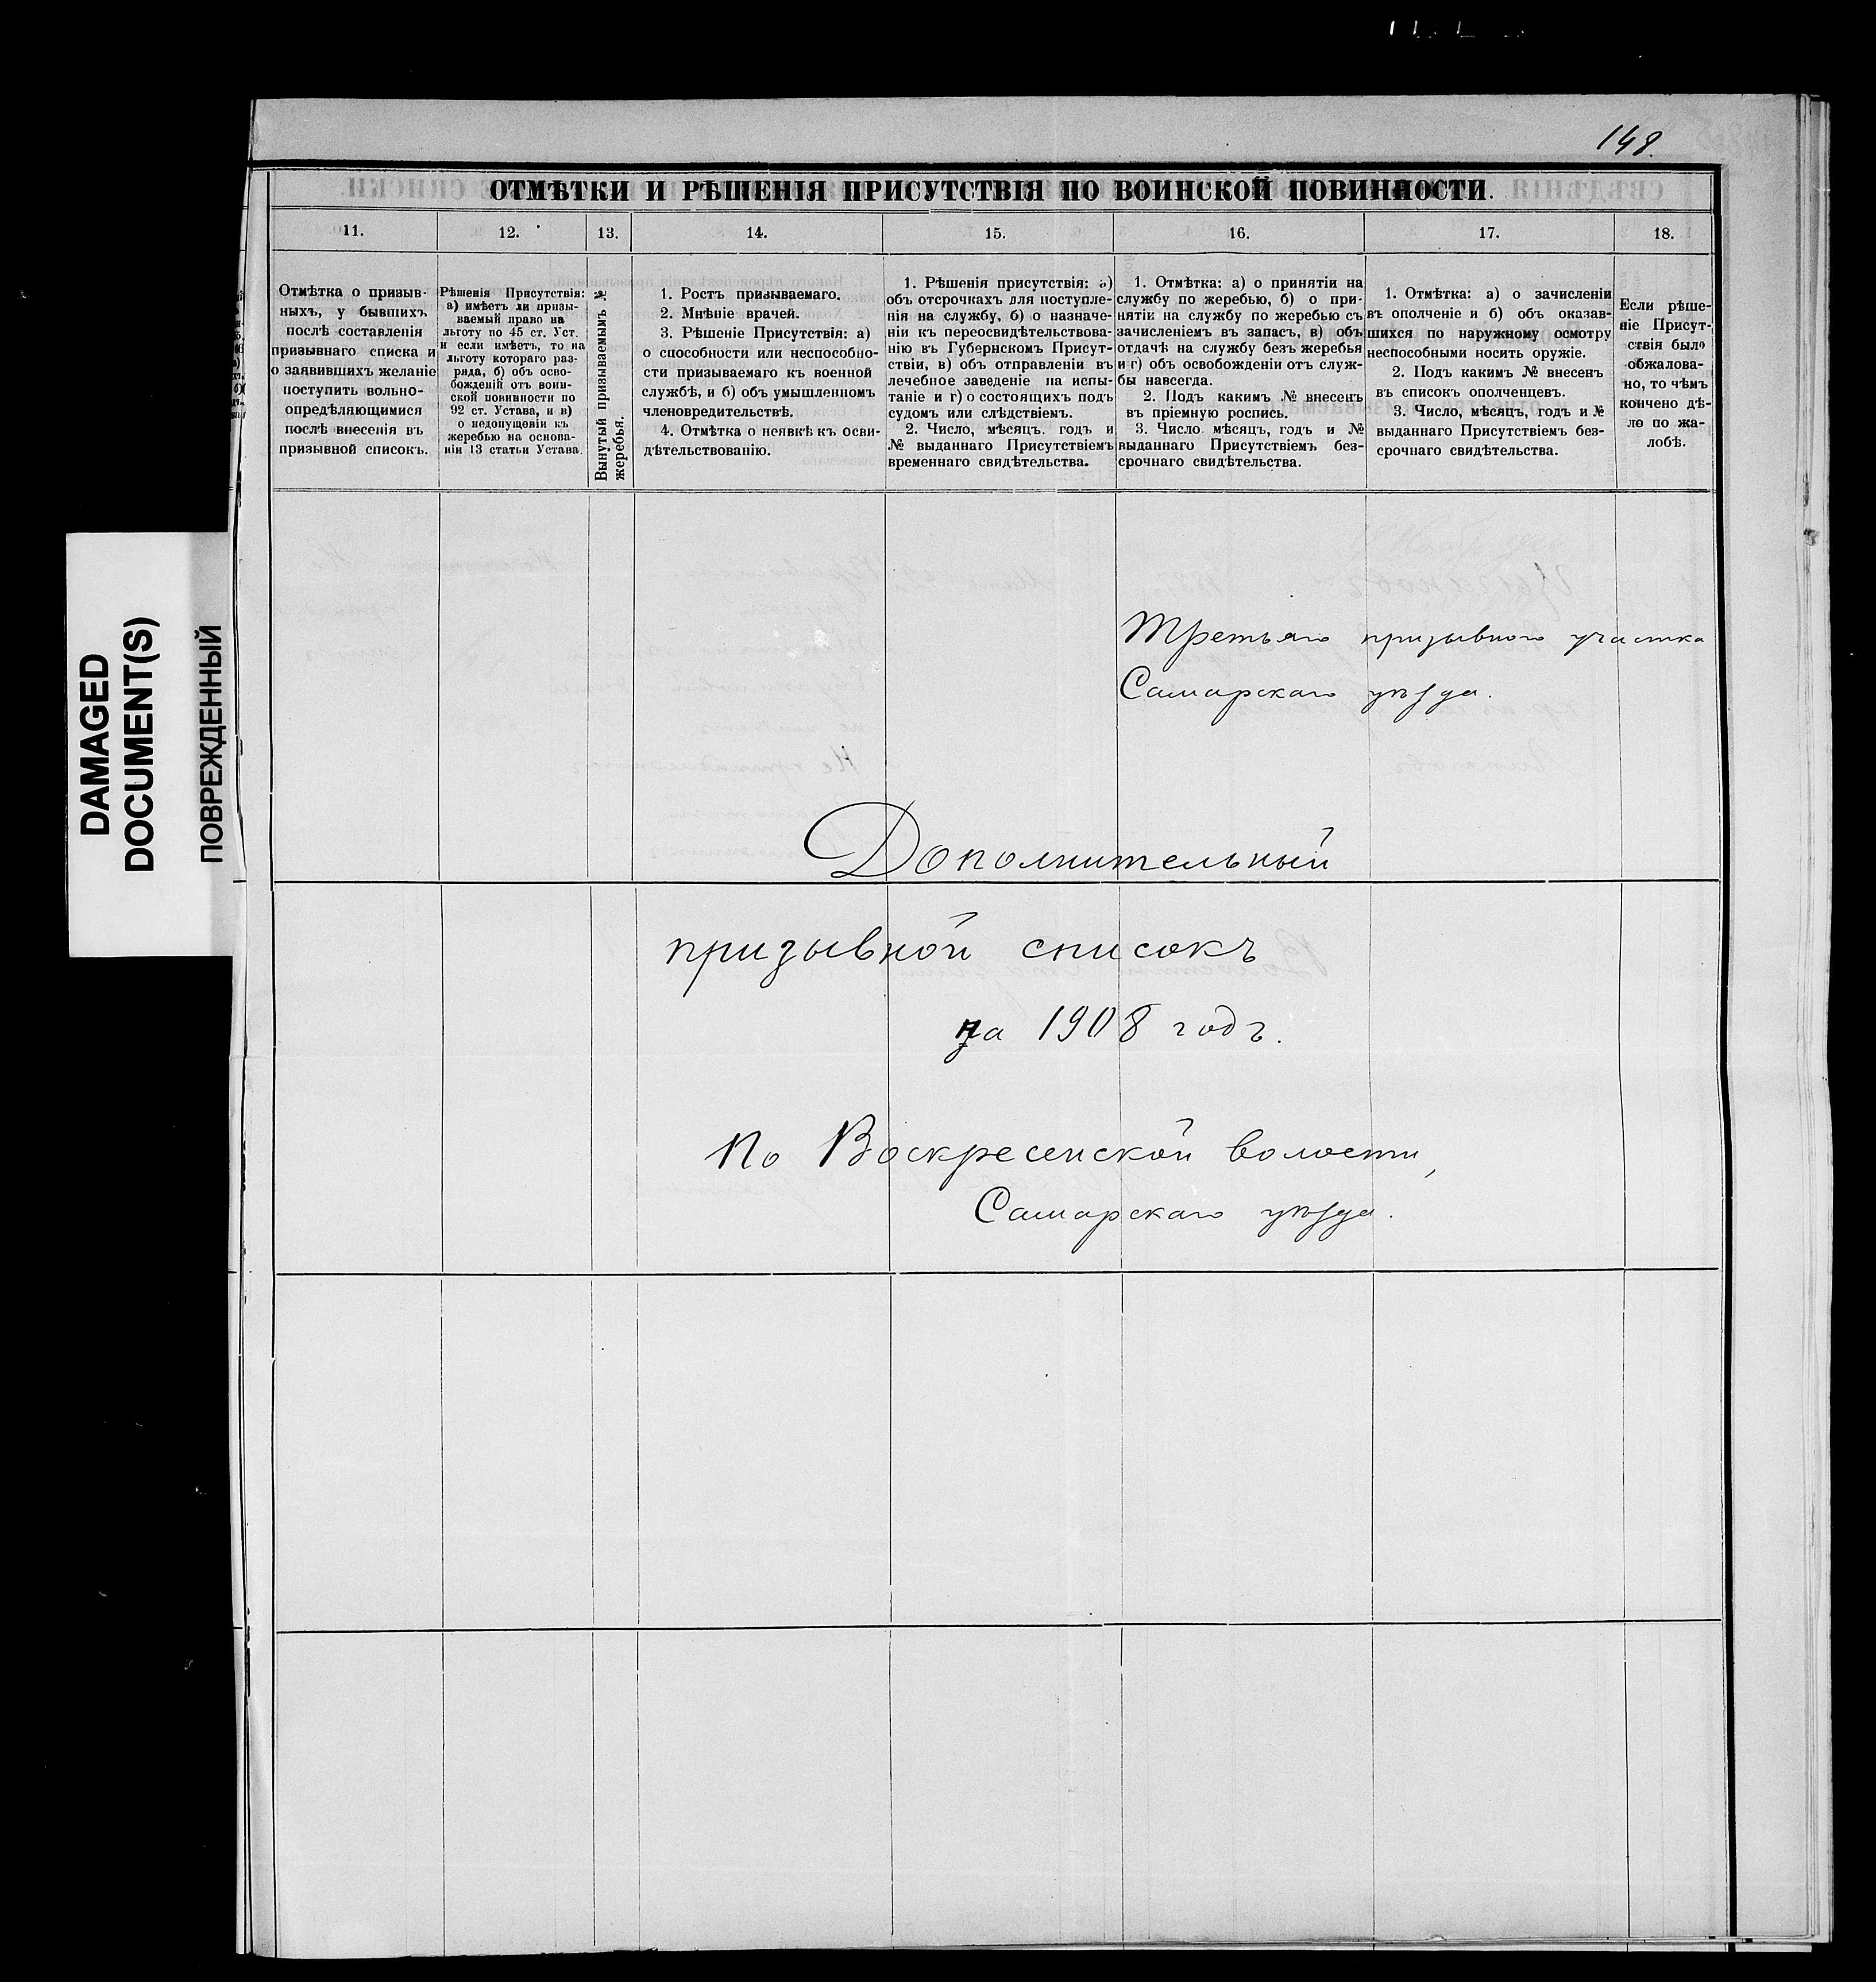 148.
ОТМѢТКИ И РѢШЕНІЯ ПРИСУТСТВІЯ ПО ВОИНСКОЙ ПОВИННОСТИ.
11.
12.
13.
14.
15.
16.
17.
18.
Отмѣтка о призыв-
ныхъ, у бывшихъ
послѣ составленія
призывнаго списка и
о заявившихъ желаніе
поступить вольно-
опредѣляющимися
послѣ внесенія въ
призывной списокъ.
Рѣшенія Присутствія:
а) имѣетъ ли призы-
ваемый право на
льготу по 45 ст. Уст.
и если имѣетъ, то на
льготу котораго раз-
ряда, б) объ осво-
божденіи отъ воин-
ской повинности по
92 ст. Устава, и в)
о недопущеніи къ
жеребью на основа-
ніи 13 статьи Устава.
Вынутый призываемымъ №
жеребья.
1. Ростъ призываемаго.
2. Мнѣніе врачей.
3. Рѣшеніе Присутствія: а)
о способности или неспособно-
сти призываемаго къ военной
службѣ, и б) объ умышленномъ
членовредительствѣ.
4. Отмѣтка о неявкѣ къ осви-
дѣтельствованію.
1. Рѣшенія присутствія: а)
объ отсрочкахъ для поступле-
нія на службу, б) о назначе-
ніи къ переосвидѣтельствова-
нію въ Губернскомъ Присут-
ствіи, в) объ отправленіи въ
лечебное заведеніе на испы-
таніе и г) о состоящихъ подъ
судомъ или слѣдствіемъ.
2. Число, мѣсяцъ. годъ и
№ выданнаго Присутствіемъ
временнаго свидѣтельства.
1. Отмѣтка: а) о принятіи на
службу по жеребью, б) о при-
нятіи на службу по жеребью съ
зачисленіемъ въ запасъ, в) объ
отдачѣ на службу безъ жеребья
и г) объ освобожденіи отъ служ-
бы навсегда.
2. Подъ какимъ № внесенъ
въ пріемную роспись.
3. Число мѣсяцъ, годъ и №
выданнаго Присутствіемъ без-
срочнаго свидѣтельства.
1. Отмѣтка: а) о зачисленіи
въ ополченіе и б) объ оказав-
шихся по наружному осмотру
неспособными носить оружіе.
2. Подъ какимъ № внесенъ
въ списокъ ополченцевъ.
3. Число, мѣсяцъ, годъ и №
выданнаго Присутствіемъ без-
срочнаго свидѣтельства.
Если рѣше-
ніе Присут-
ствія было
обжалова-
но, то чѣмъ
кончено дѣ-
ло по жа-
лобѣ.
Третьяго призывного участка
Самарскаго уѣзда.
Дополнительный
призывной списокъ
на 1908 годъ.
По Воскресенской волости,
Самарскаго уѣзда.
DAMAGED
DOCUMENT(S)
ПОВРЕЖДЕННЫЙ